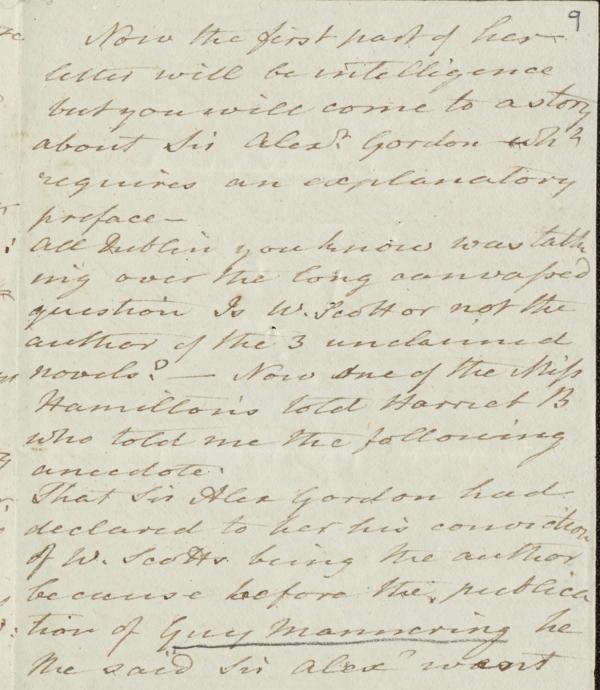 9
Now the first part of her
letter will be intelligence
but you will come to a story
about Sir Alexr. Gordon whh
requires an explanatory
preface —
All Dublin you know was talk
ing over the long canvassed
question Is W. Scott or not the
author of the 3 unclaimed
novels? — Now one of the Miss
Hamiltons told Harriet B
who told me the following
anecdote.
That Sir Alex Gordon had
declared to her his conviction
of W. Scotts being the author
because before the publica
tion of Guy Mannering he
the said Sir Alexr went